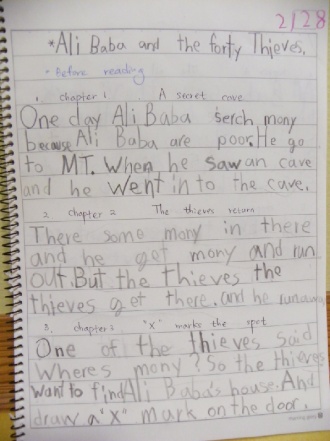 2/28
*Ali Baba and the forty Thieves.
* Before reading
1. chapter 1 A secret cave
One day Ali Baba serch mony
because Ali Baba are poor. He go
to MT. When he saw an cave
and he went in to the cave.
2. chapter 2 The thieves return
There some mony in there
and he get mony and run
out. But the thieves the
thieves get there. and he runaway
3. chapter 3 "X" marks the spot
One of the thieves said
Where's mony? So the thieves
want to find Ali Baba's house. And
draw a "X" mark on the door.